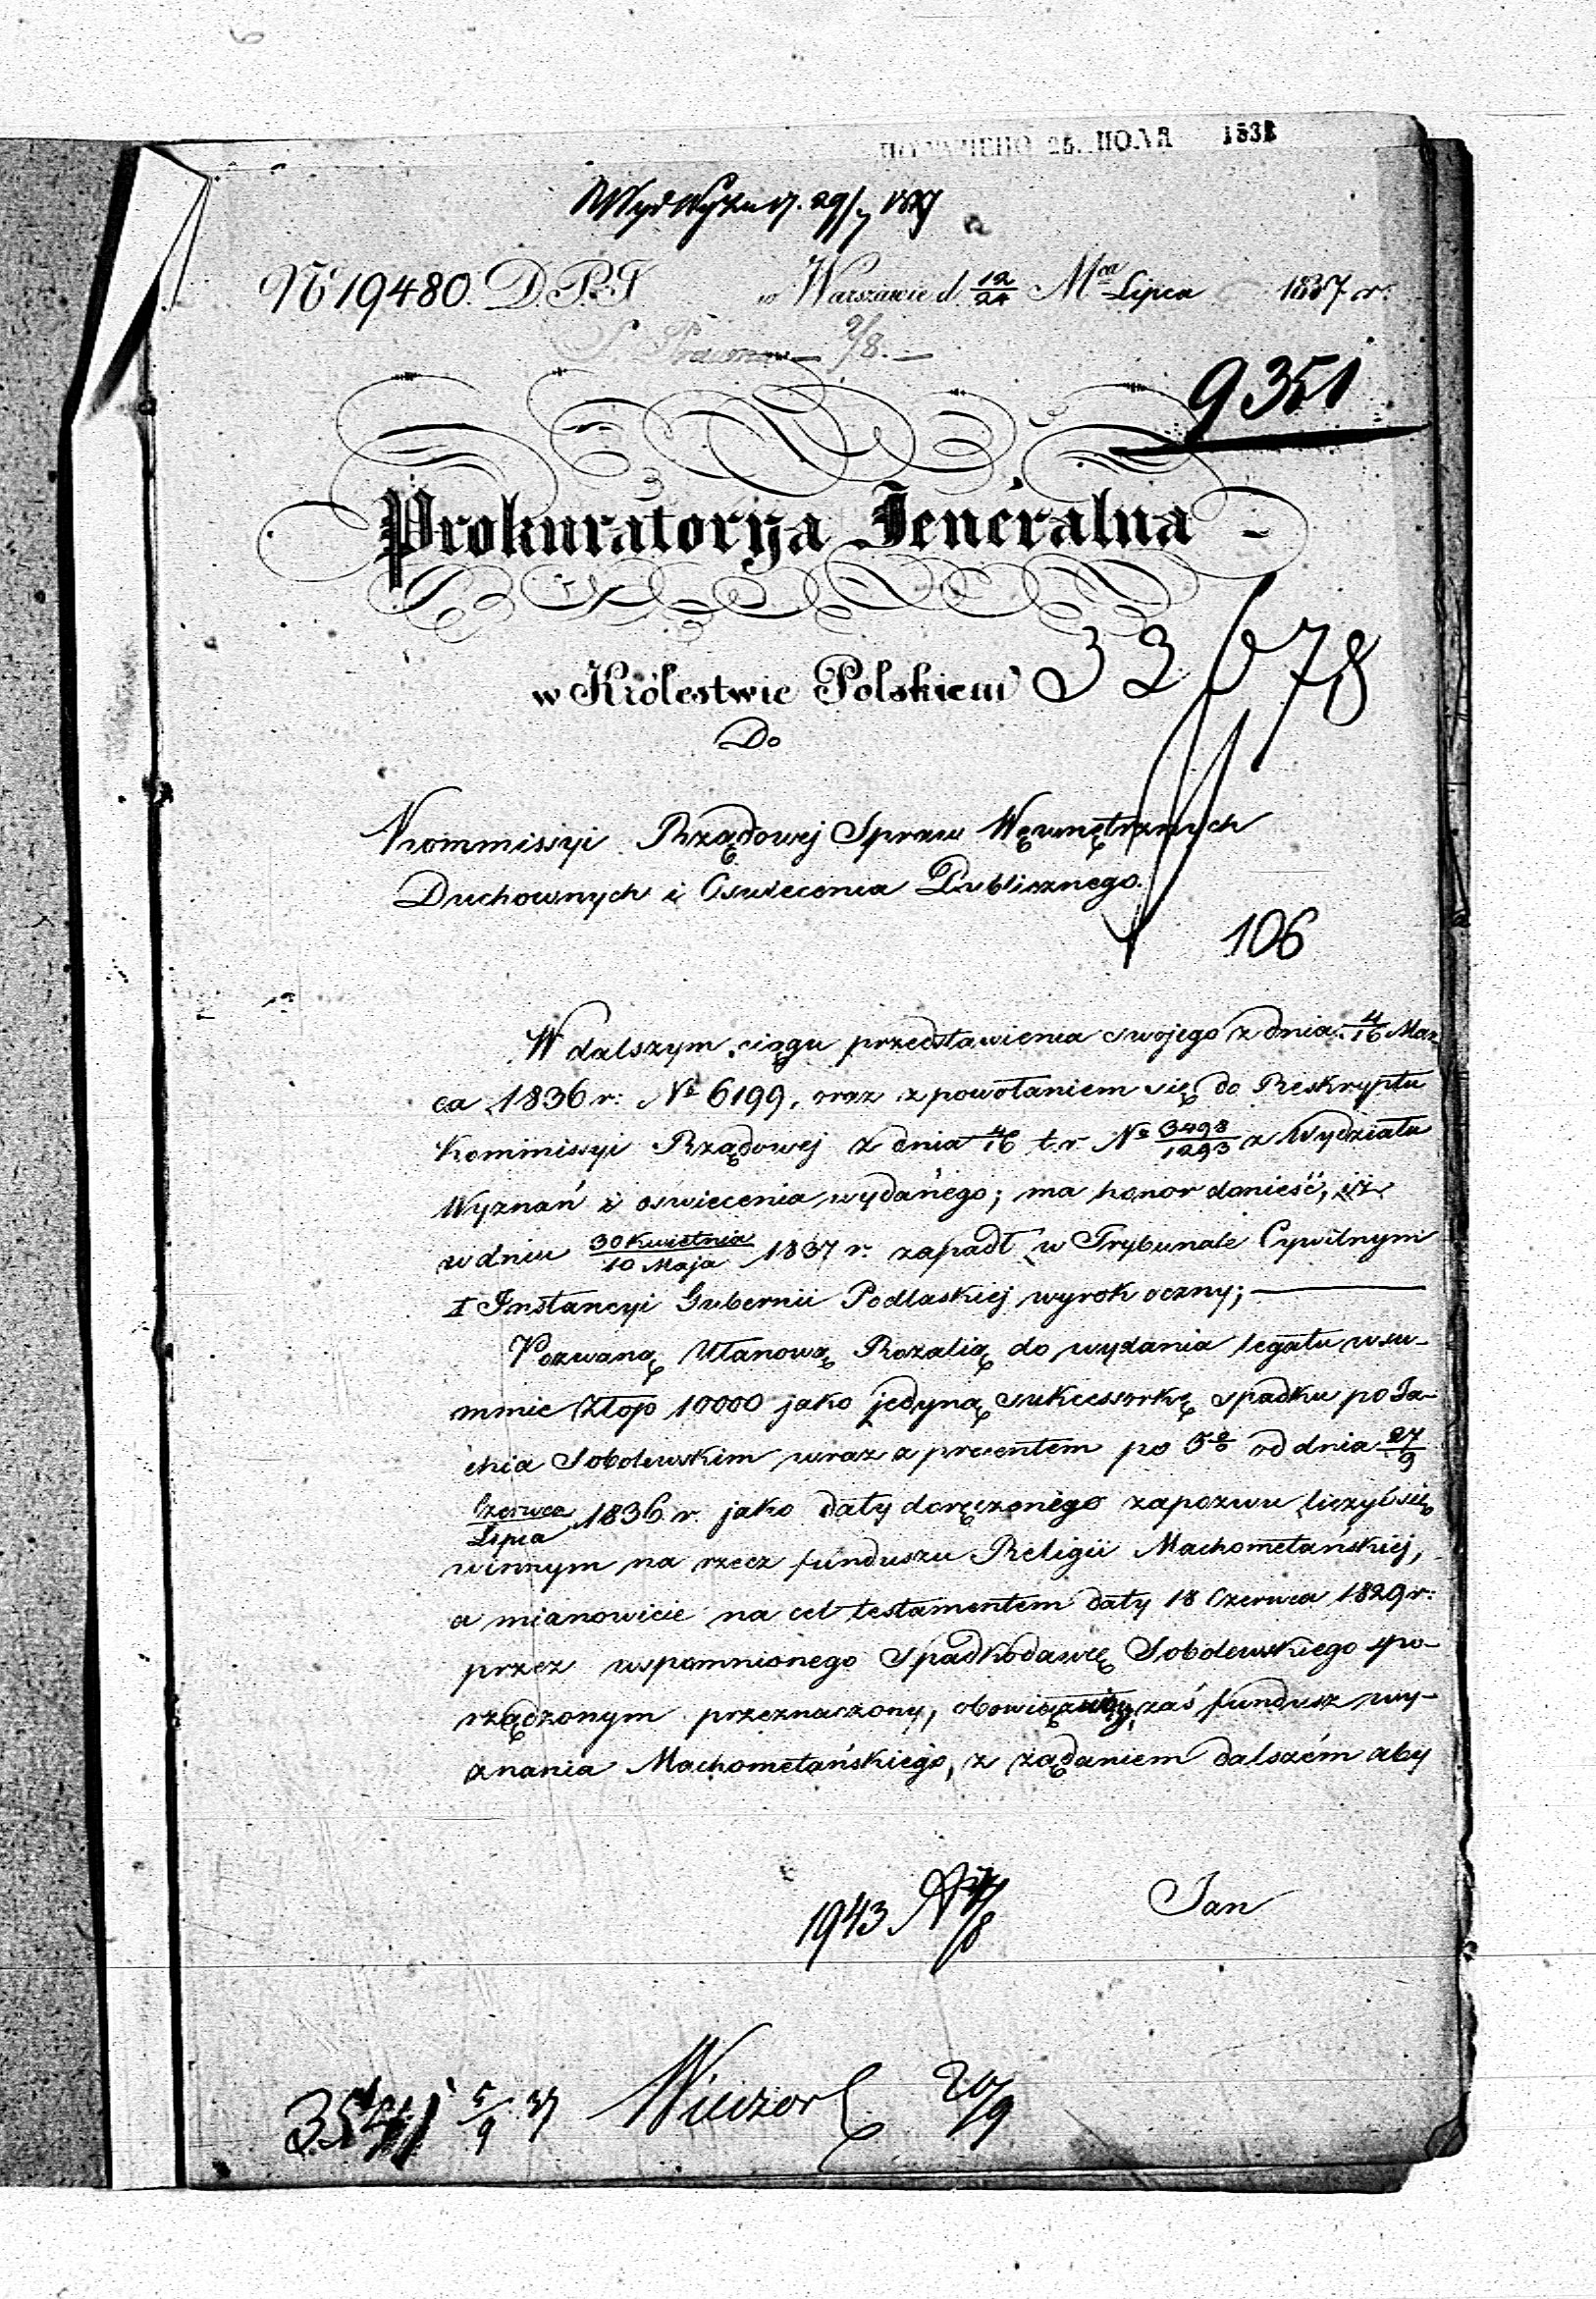 25. ІЮЛЯ 1837
29/7 1837
№ 19480. D.P.J w Warszawie d 12/24 Mca Lipca 1837 r.
9/8.
9351
Prokuratorya Jeneralna
w Królestwie Polskiem
33678
Do
Kommissyi Rządowej Spraw Wewnętrznych
Duchownych i Oswiecenia Publicznego.
106
W dalszym ciągu przedstawienia swojego z dnia 4/16 Mar-
ca 1836 r: № 6199, oraz z powołaniem się do Reskryptu
Kommissyi Rządowej z dnia 4/16 t. r. № 3498/1293 z Wydziału
Wyznań i oswiecenia wydanego; ma honor donieść, iż
w dniu 30 Kwietnia/10 Maja 1837 r. zapadł w Trybunale Cywilnym
I Instancyi Gubernii Podlaskiej wyrok oczny;
Pozwaną Ułanową Rozalią do wydania legatu w su-
mmie Złop 10000 jako jedyną sukcessorkę spadku po Ja-
chia Sobolewskim wraz z procentem po 5% od dnia 27/9
Czerwca/Lipca 1836 r. jako daty doręczonego zapozwu liczyć się
winnym na rzecz funduszu Religii Machometańskiej,
a mianowicie na cel testamentem daty 18 Czerwca 1829 r:
przez wspomnionego Spadkodawcę Sobolewskiego spo-
rządzonym przeznaczony, zaś fundusz wy-
znania Machometańskiego, z żądaniem dalszém aby
1943 Jan
5/9 37 20/9